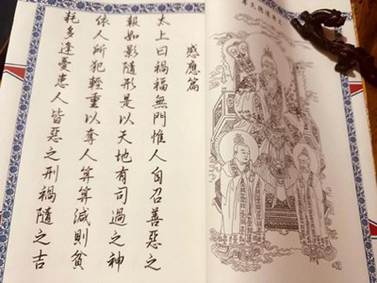 感應篇
太上曰禍福無門惟人自召善惡之
報如影隨形是以天地有司過之神
依人所犯輕重以奪人算算減則貧
耗多逢憂患人皆惡之刑禍隨之吉